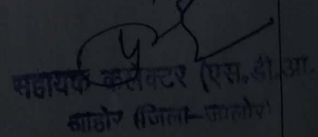 सहायक कलेक्टर (एस. डी. ओ.
आहोर (जिला-जालोर)